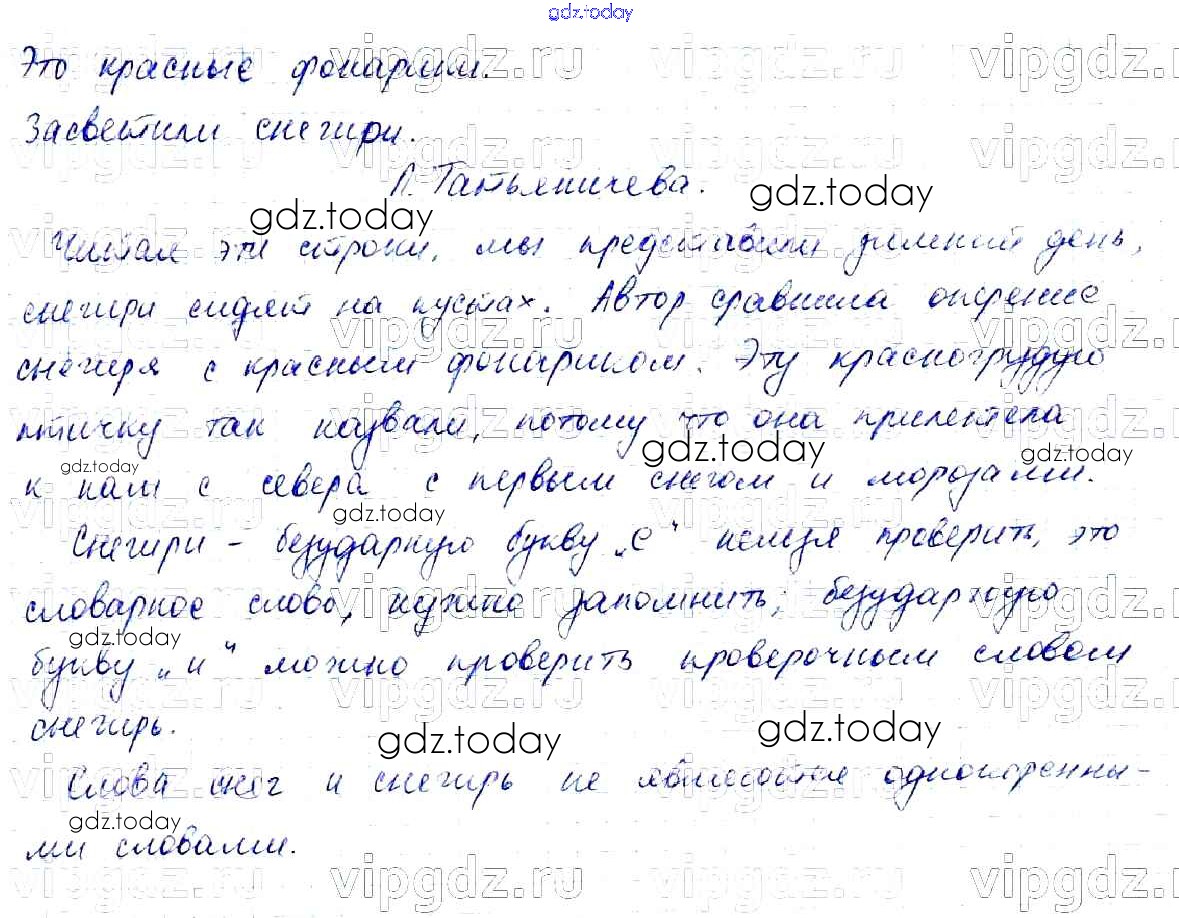 gdz.today
Это красные фонарики.
Засветили снегири.
Л. Татьяничева.
Читая эти строки, мы представили зимний день,
снегири сидят на кустах. Автор сравнила оперение
снегиря с красным фонариком. Эту красногрудую
птичку так назвали, потому что она прилетела
к нам с севера с первым снегом и морозами.
Снегири – безударную букву „е“ нельзя проверить, это
словарное слово, нужно запомнить; безударную
букву „и“ можно проверить проверочным словом
снегирь.
Слова снег и снегирь не являются однокоренны-
ми словами.